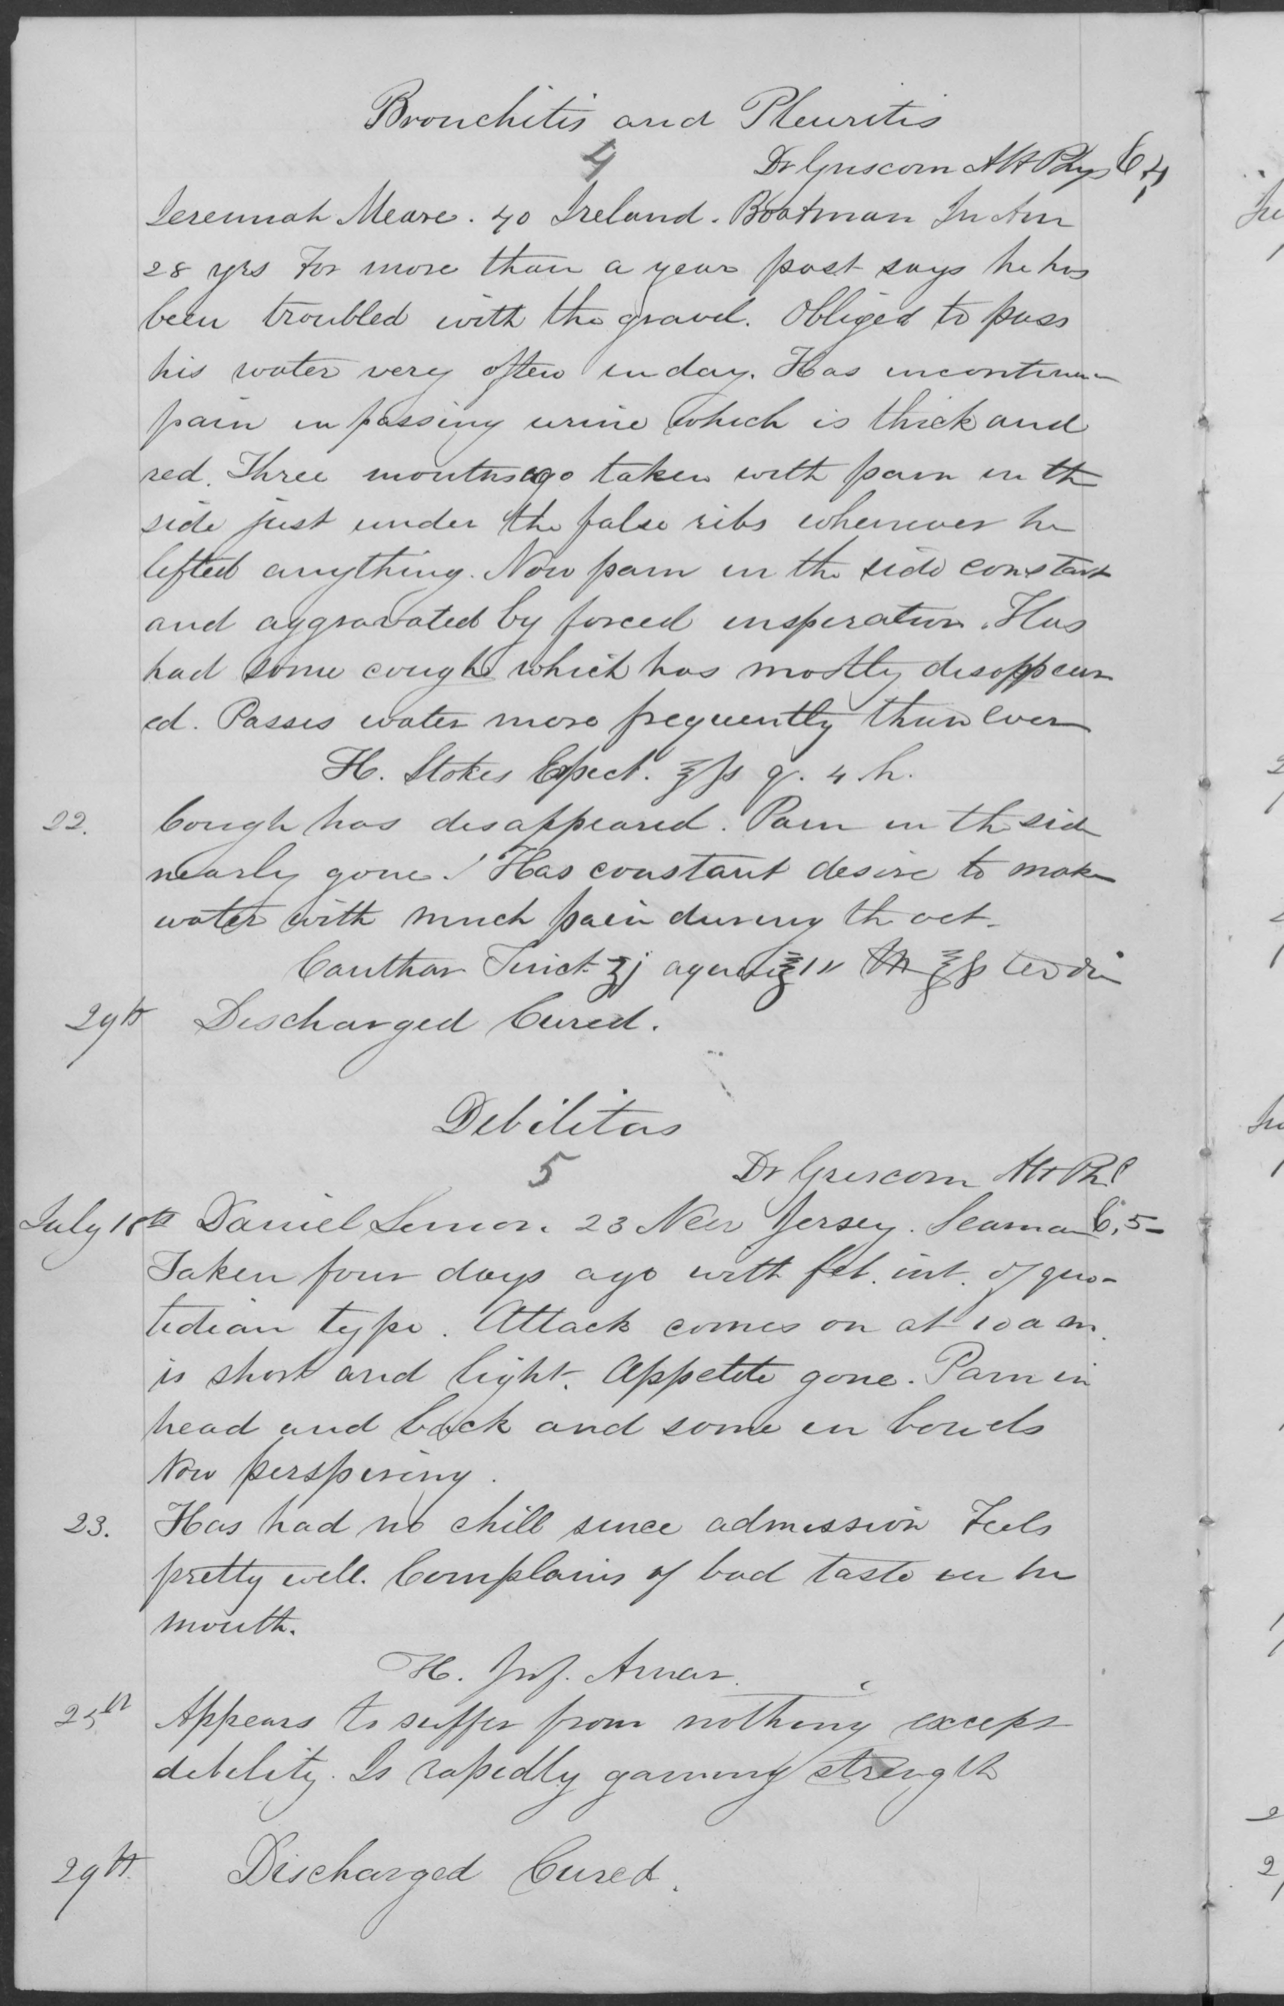 Bronchitis and Pleuritis
4 Dr Griscom Att Phys C, 4
Jeremiah Meare. 40 Ireland. Boatman In Am
28 yrs For more than a year past says he has
been troubled with the gravel. Obliged to pass
his water very often in day. Has incontinu-
pain in passing urine which is thick and
red. Three months ago taken with pain in th
side just under the false ribs whenever he
lifted anything. Now pain in the side constant
and aggravated by forced inspiration. Has
had some cough which has mostly disappear
ed. Passes water more frequently than ever
H. Stokes Expect. ℥ſs q. 4 h.
22. Cough has disappeared. Pain in th side
nearly gone. Has constant desire to make
water with much pain during th act.
Canthar Tinct ʒj aquae ter die
29th Discharged Cured.
Debilitas
5 Dr Griscom Att Ph
July 18th Daniel Lemon. 23 New Jersey. Seaman C, 5-
Taken four days ago with feb. int. of quo-
tidian type. Attack comes on at 10 a m.
is short and light. Appetite gone. Pain in
head and back and some in bowels
Now perspiring.
23. Has had no chill since admission Feels
pretty well. Complains of bad taste in he
mouth.
H. Inf. Amar.
25th Appears to suffer from nothing except
debility. Is rapidly gaining strength
29th Discharged Cured.